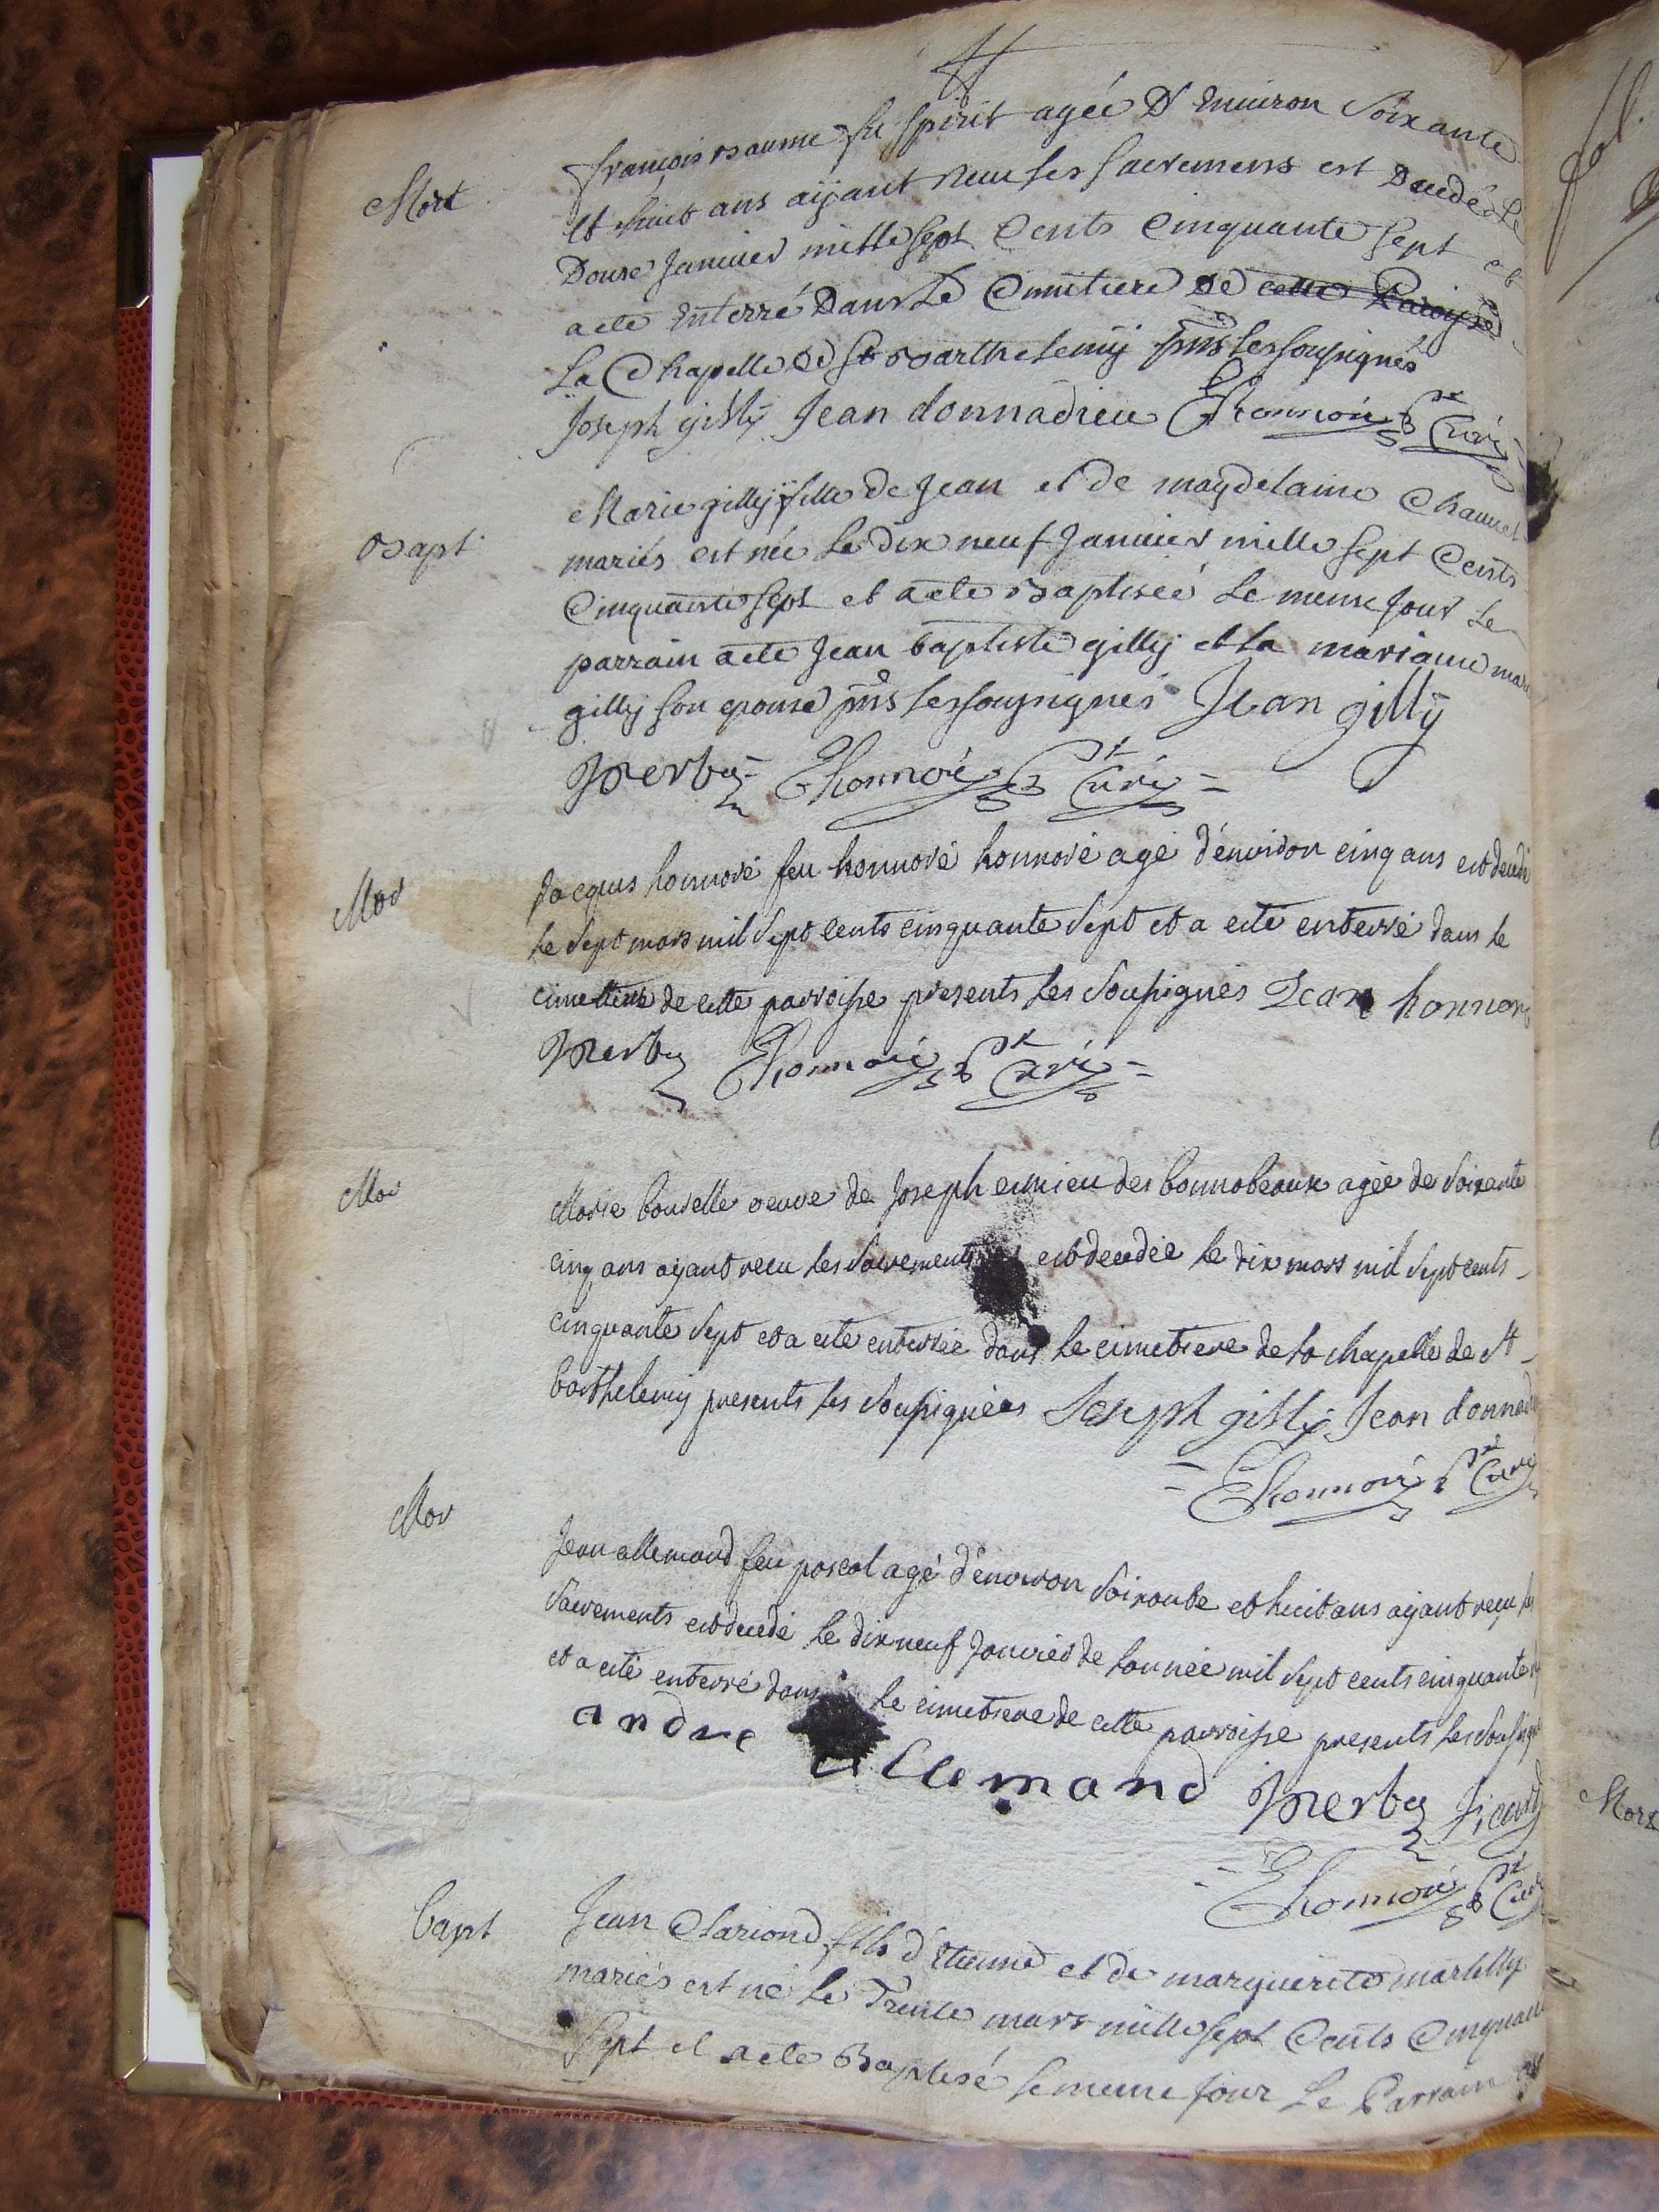 Mort
françois Baume fu Spirit agée D'Environ Soixante
et huit ans aÿant reeu ses sacremens est Decedé Le
Douse Janvier mille sept Cents Cinquante sept et
a ete Enterré Dans Le Cimetiere De cette Paroisse
La Chapelle De St Barthelemÿ pnts les sousignés
Joseph gilly Jean donnadieu Ehonnoré ptre Curé
Bapt
Marie gillÿ fille de Jean et de magdelaine Chauvet
mariés est née Le dix neuf Janvier mille sept Cents
Cinquante sept et a ete Baptiseé Le meme Jour Le
parrain a ete Jean baptiste gillÿ et la mariaine
gillÿ son epouse pnts les sousignés Jean gillÿ
Ehonnoré ptre Curé
Mor
Jacques honnoré feu honnoré honnoré agé d'environ cinq ans est decedé
le sept mars mil sept cents cinquante sept et a eté enterré dans le
cimetiere de cette parroisse presents les soussignés Jean honnoré
Ehonnoré ptre Curé
Mor
Marie bourelle veuve de Joseph eimieu des bonnobeaux agée de soixante
cinq ans ayant recu les sacrements est decedée le dix mars mil sept cents
cinquante sept et a eté enterrée dans le cimetiere de la chapelle de st
barthelemy presents les soussignées Joseph gilly Jean donnadieu
Ehonnoré ptre Curé
Mor
Jean allemand feu pascal agé d'environ soixante et huit ans ayant recu les
sacrements est decedé le dix neuf Janvier de l'année mil sept cents cinquante
et a eté enterré dans le cimetiere de cette parroisse presents les soussignés
andre allemand
Ehonnoré ptre Curé
bapt
Jean Clariond fils d'Etienne et de marguerite martelly
mariés est né le Trente mars mille sept Cents Cinquante
sept et a ete Baptisé le meme Jour Le Parrain
Mort